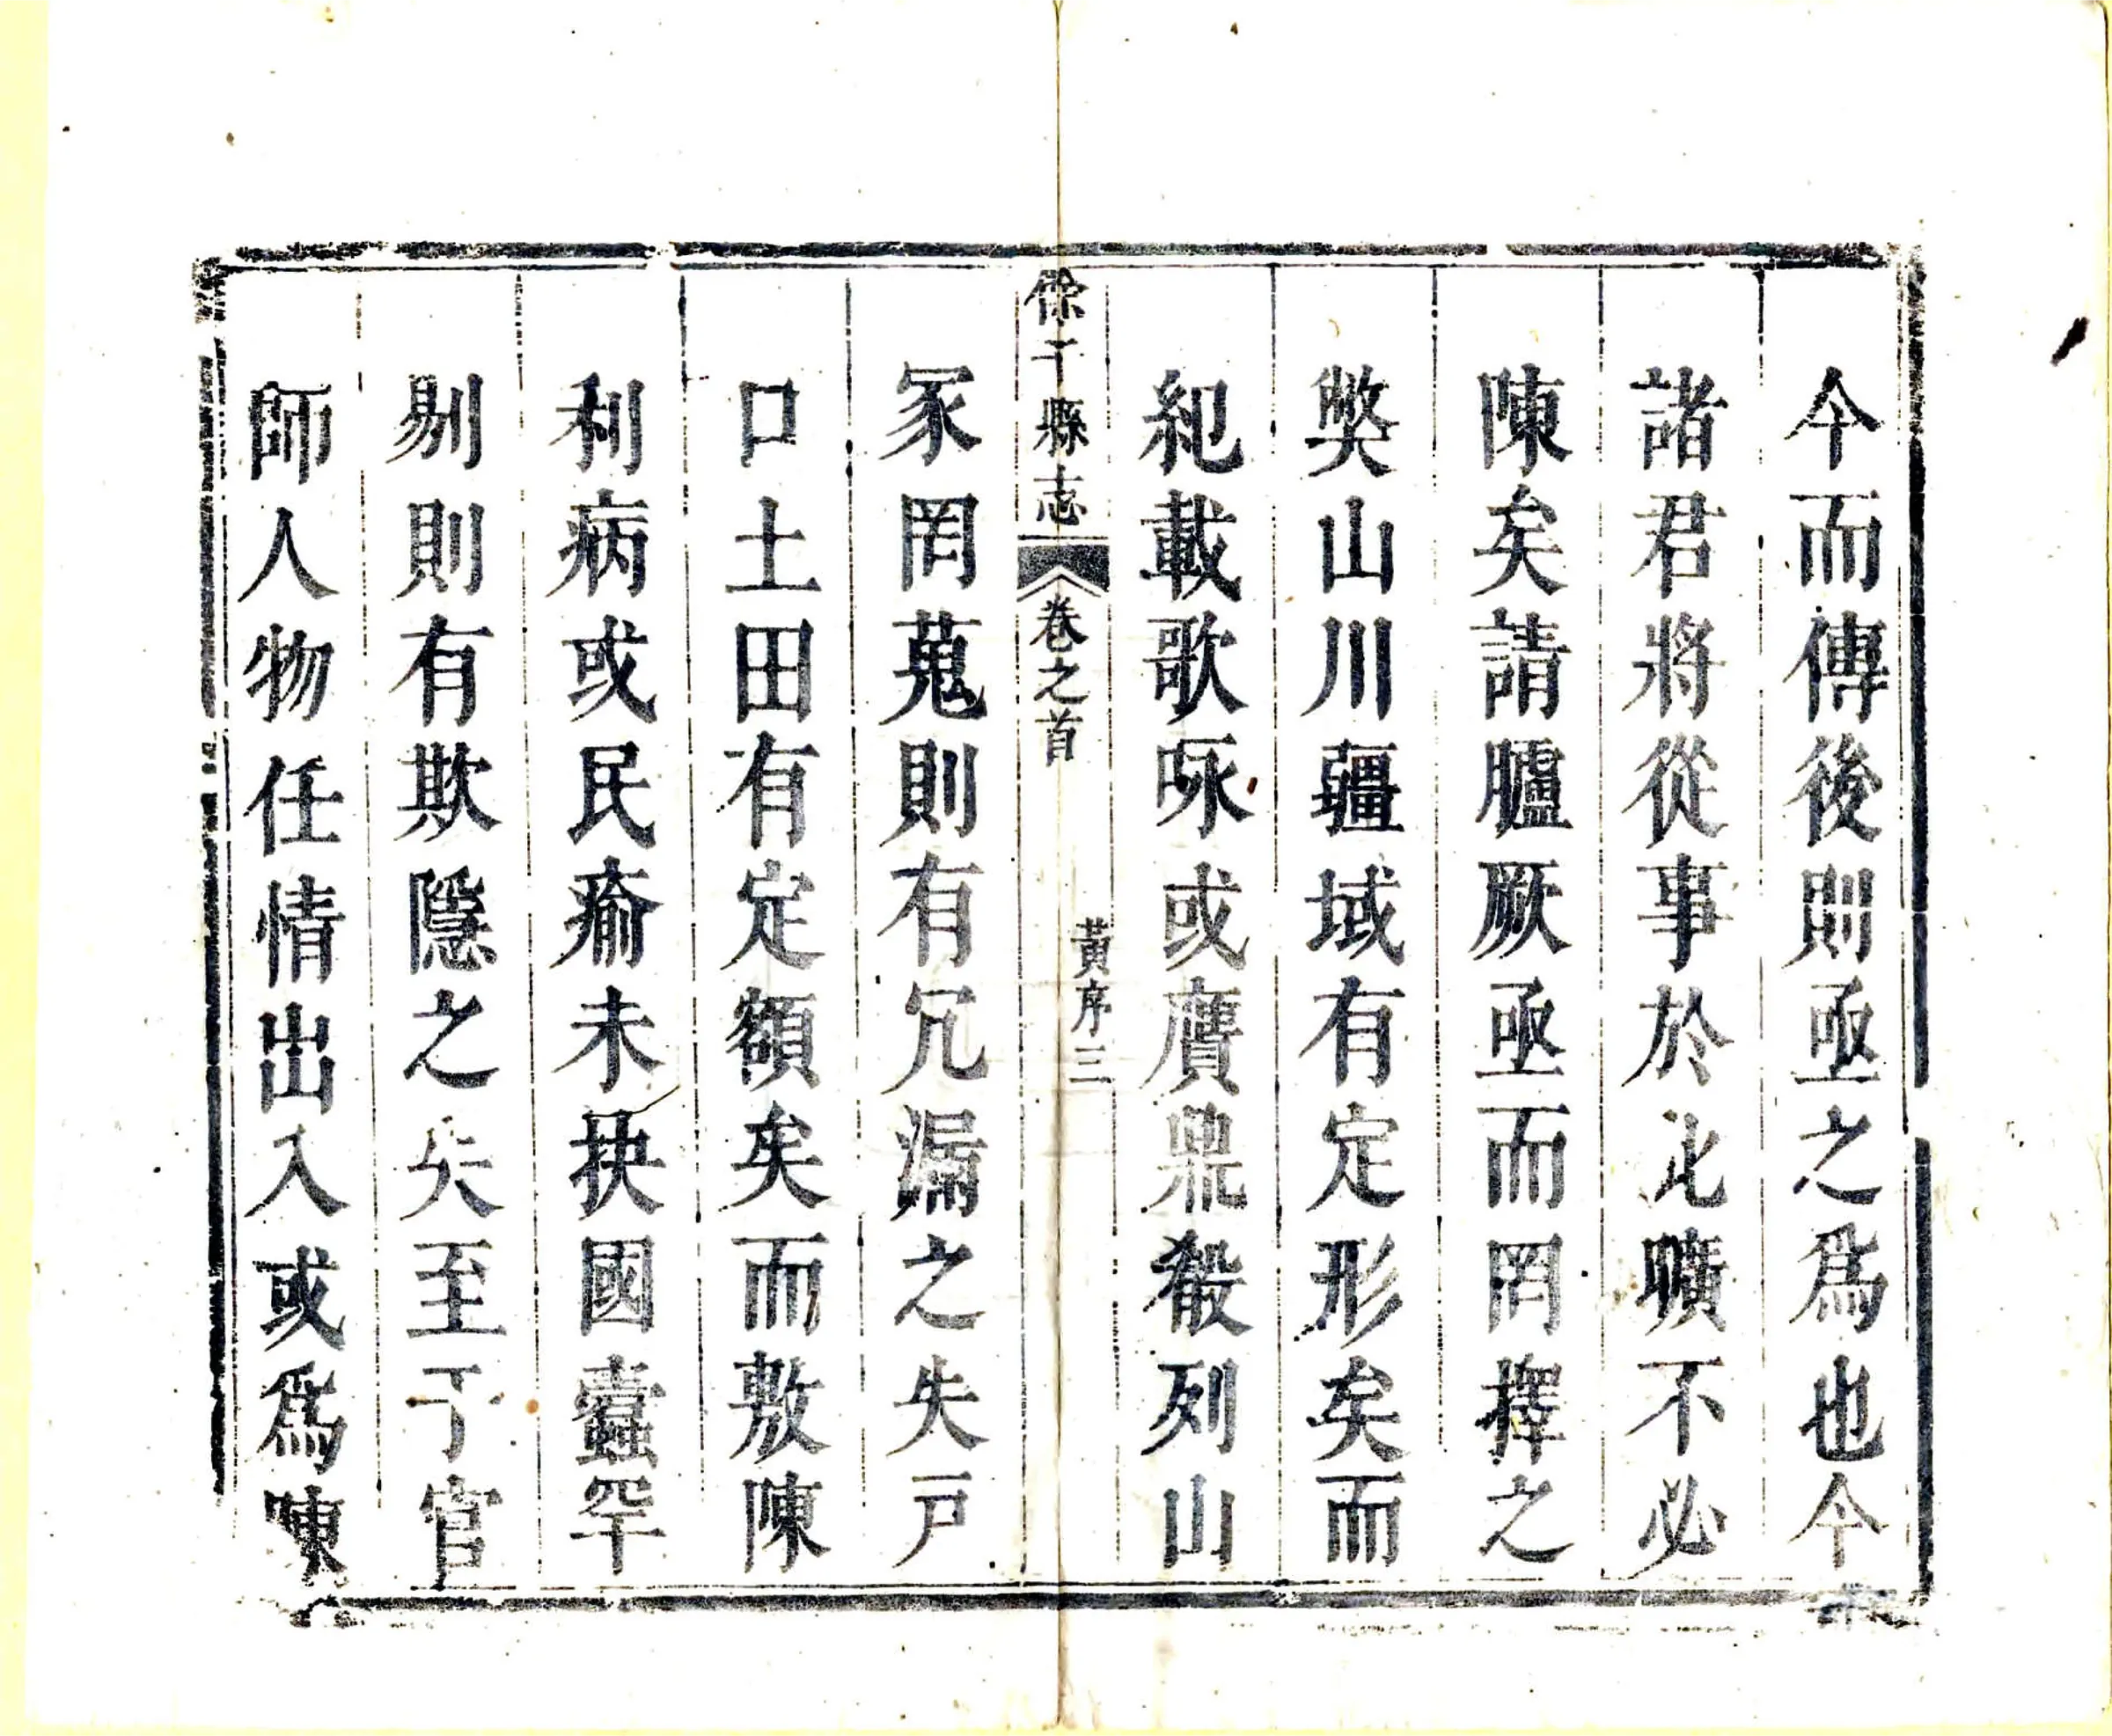 今而傳後則亟之爲也今
諸君將從事於此曠不必
陳矣請臚厥亟而罔擇之
獘山川疆域有定形矣而
紀載歌咏或贋鼎殽列山
餘干縣志
卷之首
黃序三
冢罔蒐則有冗漏之失戸
口土田有定額矣而敷陳
利病或民瘉未抉國蠹罕
剔則有欺隱之失至丁官
師人物任情出入或爲陳